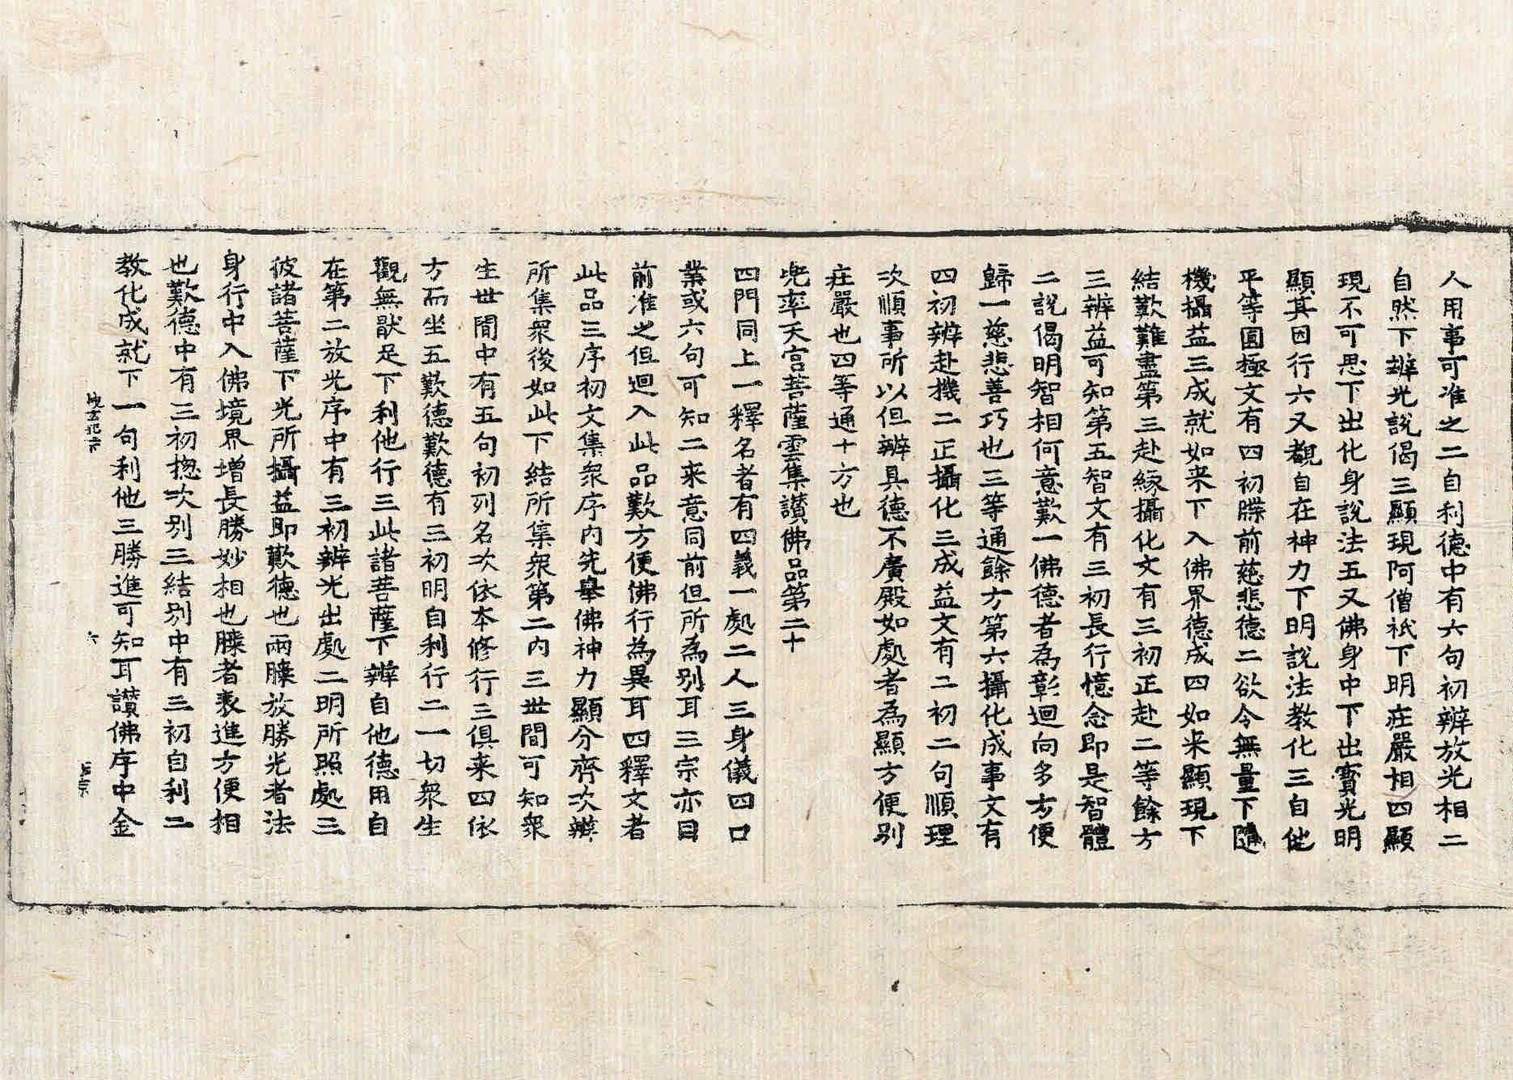 人用事可准之二自利德中有六句初辨放光相二
自然下辨光說偈三顯現阿僧祇下明庄嚴相四顯
現不可思下出化身說法五又佛身中下出寶光明
顯其因行六又覩自在神力下明說法教化三自他
平等圓極文有四初牒前慈悲德二欲令無量下隨
機攝益三成就如来下入佛界德成四如来顯現下
結歎難盡第三赴緣攝化文有三初正赴二等餘方
三辨益可知第五智文有三初長行憶念即是智體
二說偈明智相何意歎一佛德者為彰迴向多方便
歸一慈悲善巧也三等通餘方第六攝化成事文有
四初辨赴機二正攝化三成益文有二初二句順理
次順事所以但辨具德不廣殿如處者為顯方便別
庄嚴也四等通十方也
兠率天宫菩薩雲集讃佛品第二十
四門同上一釋名者有四義一處二人三身儀四口
業或六句可知二来意同前但所為別耳三宗亦同
前准之但迴入此品歎方便佛行為異耳四釋文者
此品三序初文集衆序内先舉佛神力顯分齊次辨
所集衆後如此下結所集衆第二内三世間可知衆
生世間中有五句初列名次依本修行三俱来四依
方而坐五歎德歎德有三初明自利行二一切衆生
觀無猒足下利他行三此諸菩薩下辨自他德用自
在第二放光序中有三初辨光出處二明所照處三
彼諸菩薩下光所攝益即歎德也兩膝放勝光者法
身行中入佛境界增長勝妙相也膝者表進方便相
也歎德中有三初捴次別三結別中有三初自利二
教化成就下一句利他三勝進可知耳讃佛序中金
六